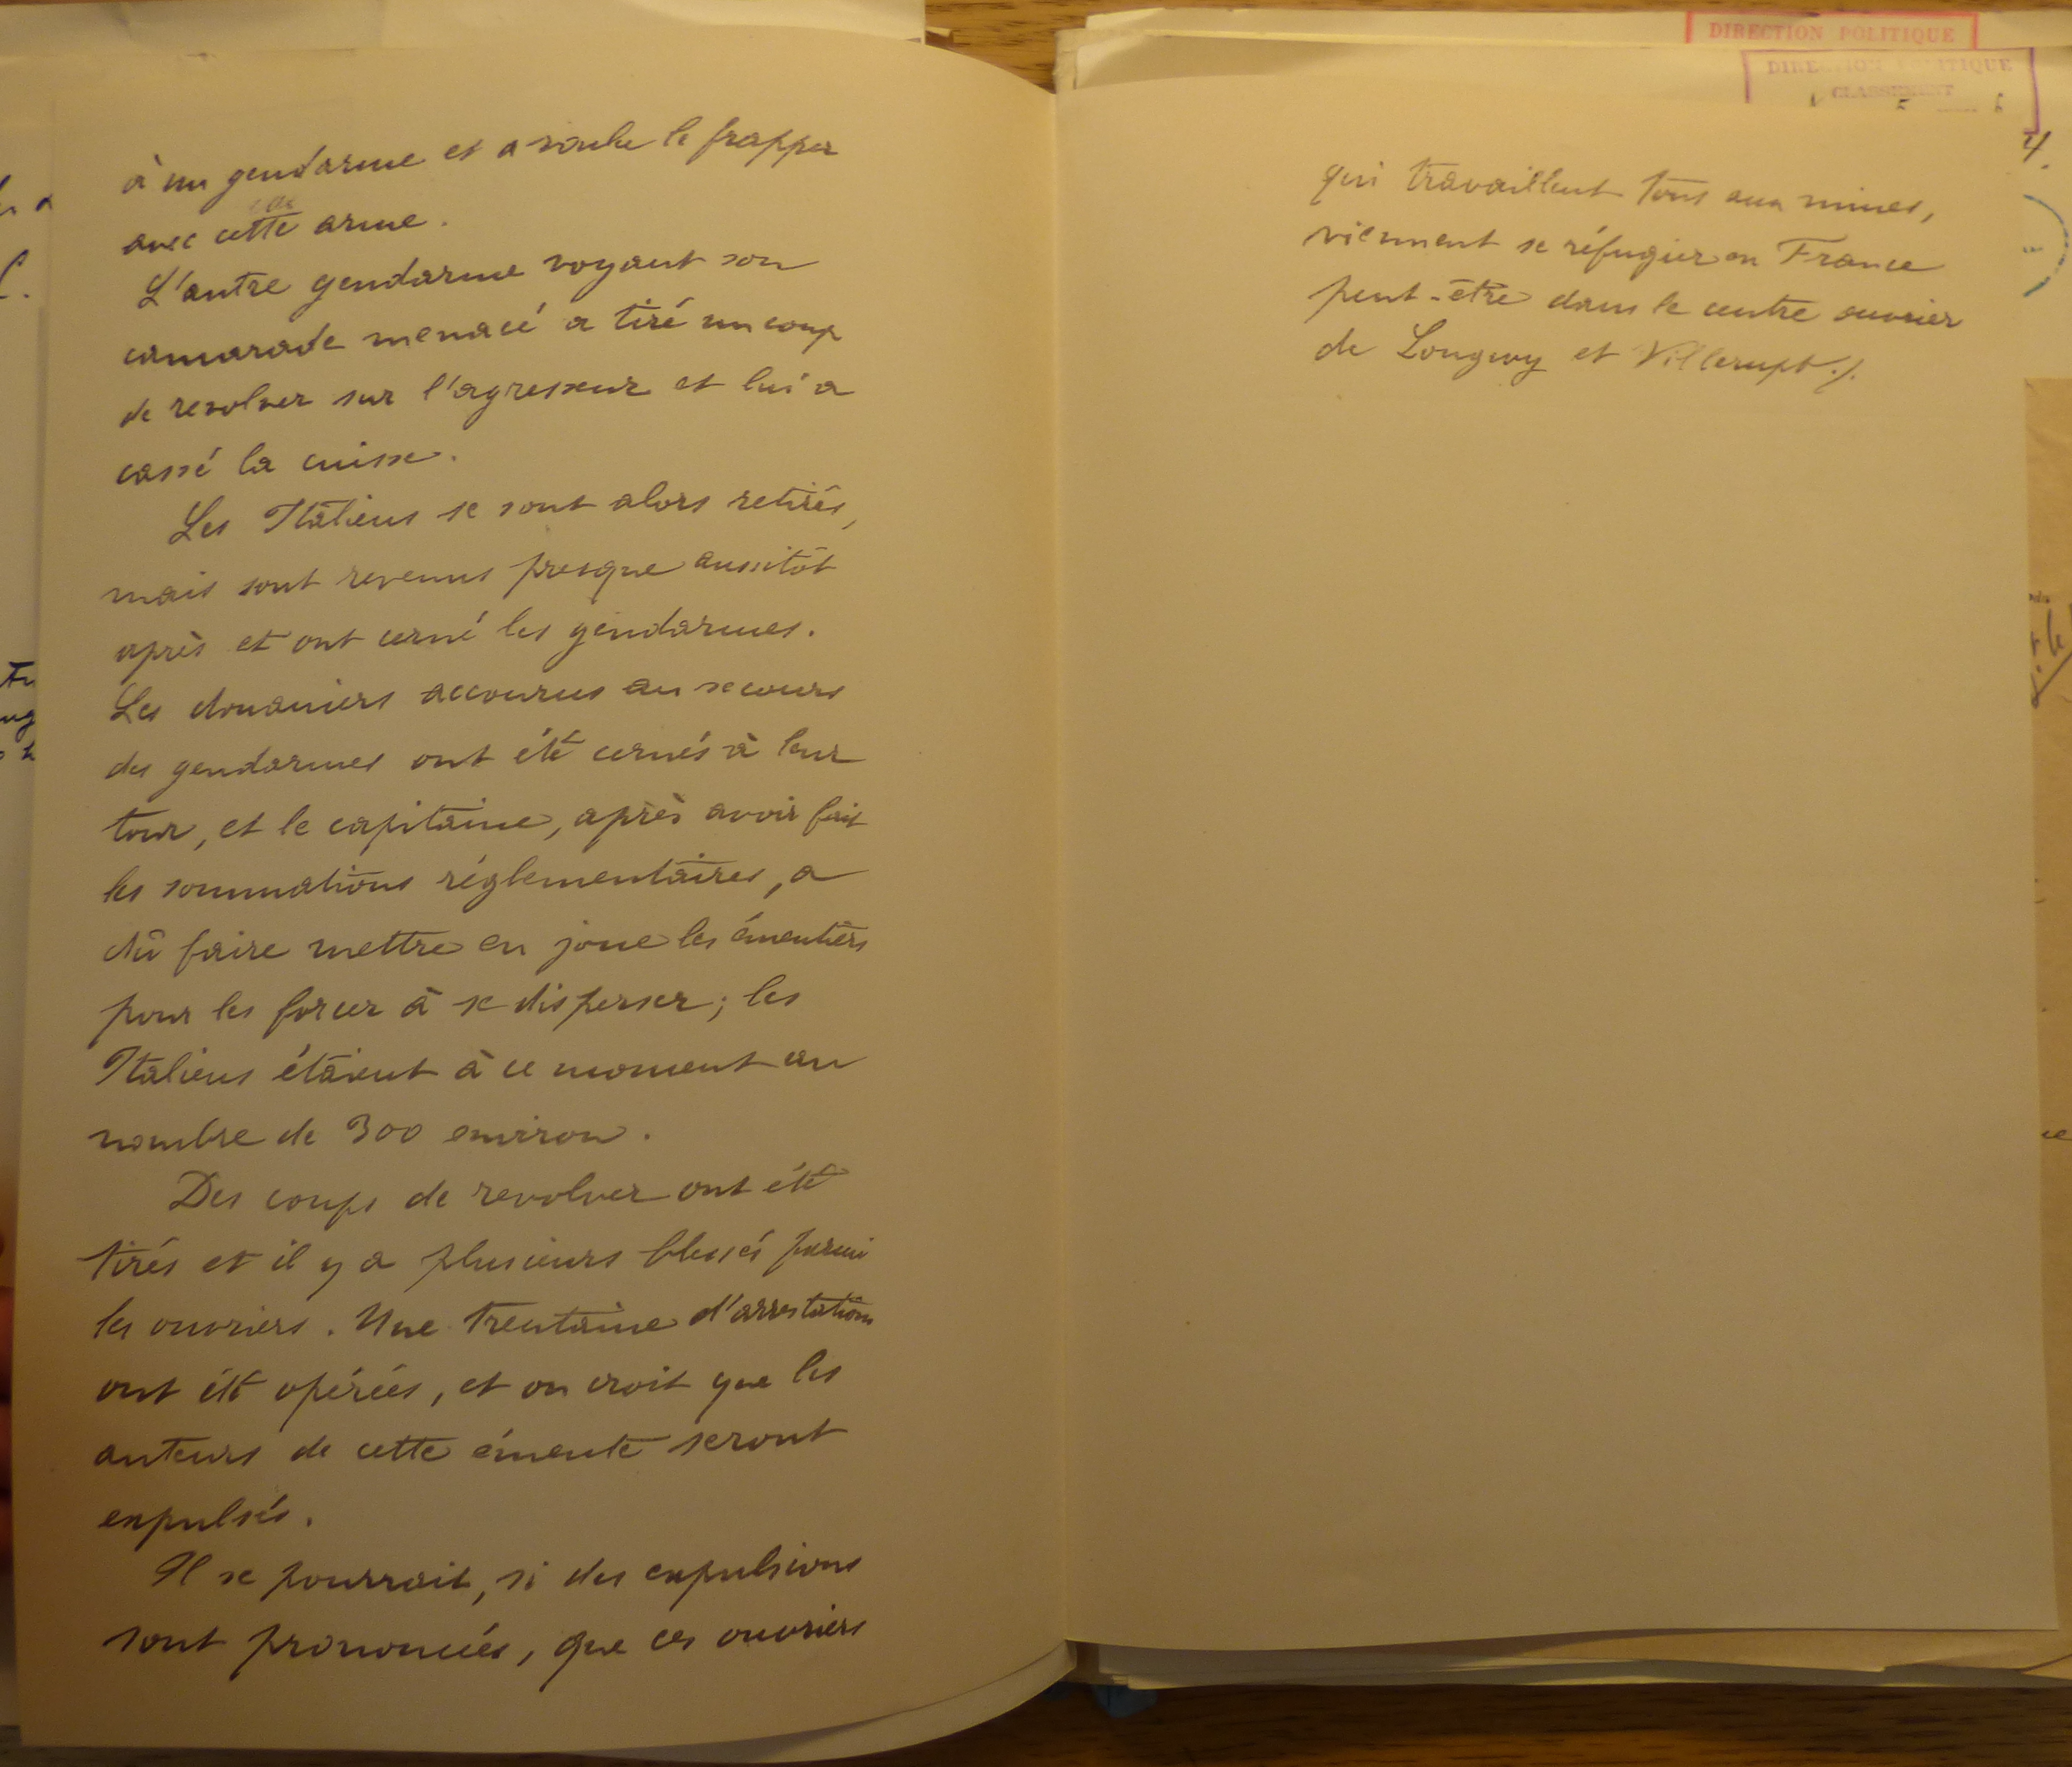 à un gendarme et a voulu le frapper
avec cette arme.
L'autre gendarme voyant son
camarade menacé a tiré un coup
de revolver sur l'agresseur et lui a
cassé la cuisse.
Les Italiens se sont alors retirés,
mais sont revenus presque aussitôt
après et ont cerné les gendarmes.
Les douaniers accourus au secours
des gendarmes ont été cernés à leur
tour, et le capitaine, après avoir fait
les sommations réglementaires, a
dû faire mettre en joue les émeutiers
pour les forcer à se disperser; les
Italiens étaient à ce moment au
nombre de 300 environ.
Des coups de revolver ont été
tirés et il y a plusieurs blessés parmi
les ouvriers. Une trentaine d'arrestations
ont été opérées, et on croit que les
auteurs de cette émeute seront
expulsés.
Il se pourrait, si des expulsions
sont prononcées, que ces ouvriers
DIRECTION POLITIQUE
DIRECTION POLITIQUE
CLASSEMENT
qui travaillent tous aux mines,
viennent se réfugier en France
peut-être dans le centre ouvrier
de Longwy et Villerupt ./.